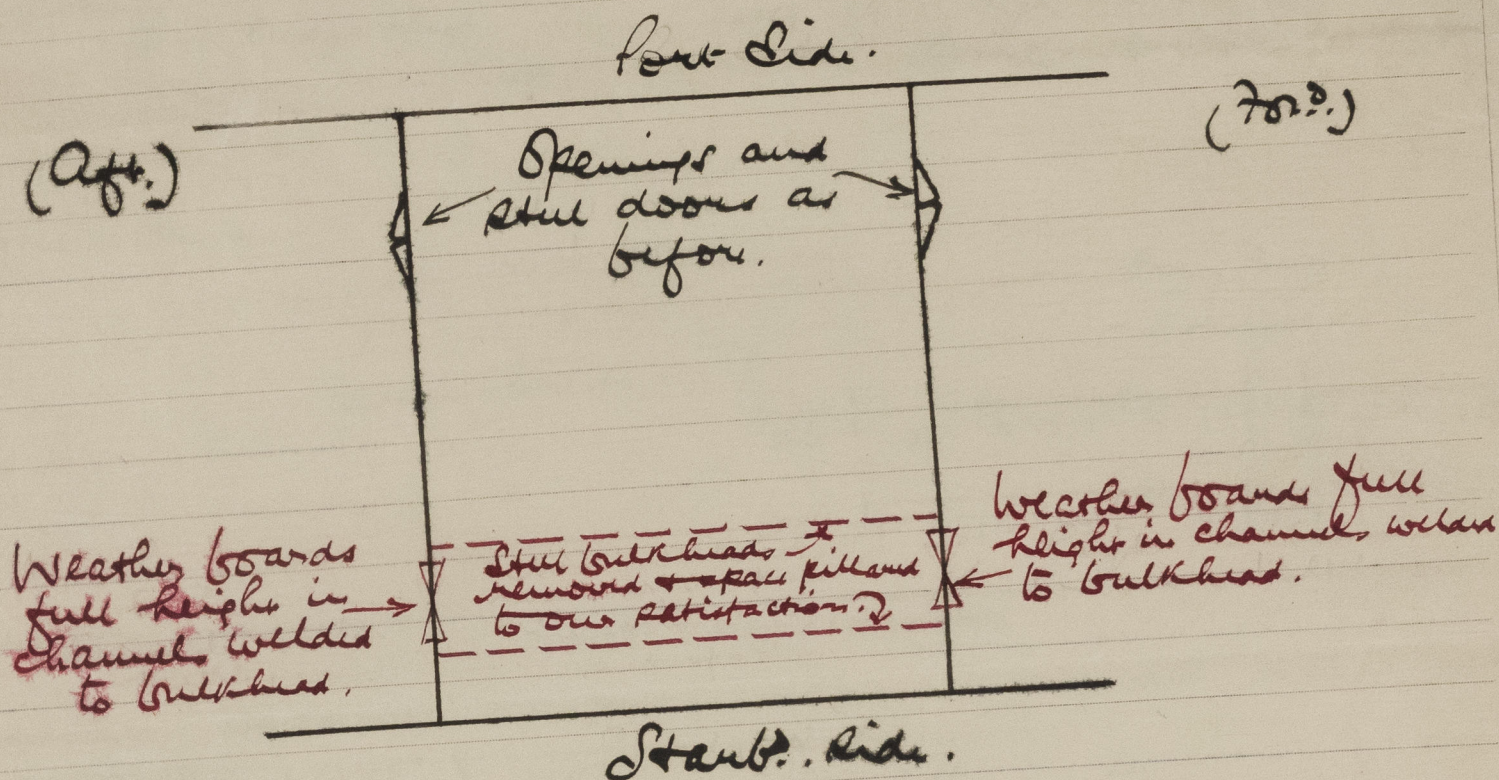 Port Side.
(Aft.)
(For⁠d.)
Openings and
steel doors as
before.
Weather boards
full height in
channels welded
to bulkhead.
Steel bulkheads
removed & space pillared
to our satisfaction.
Weather boards full
height in channels welded
to bulkhead.
Starbd. side.